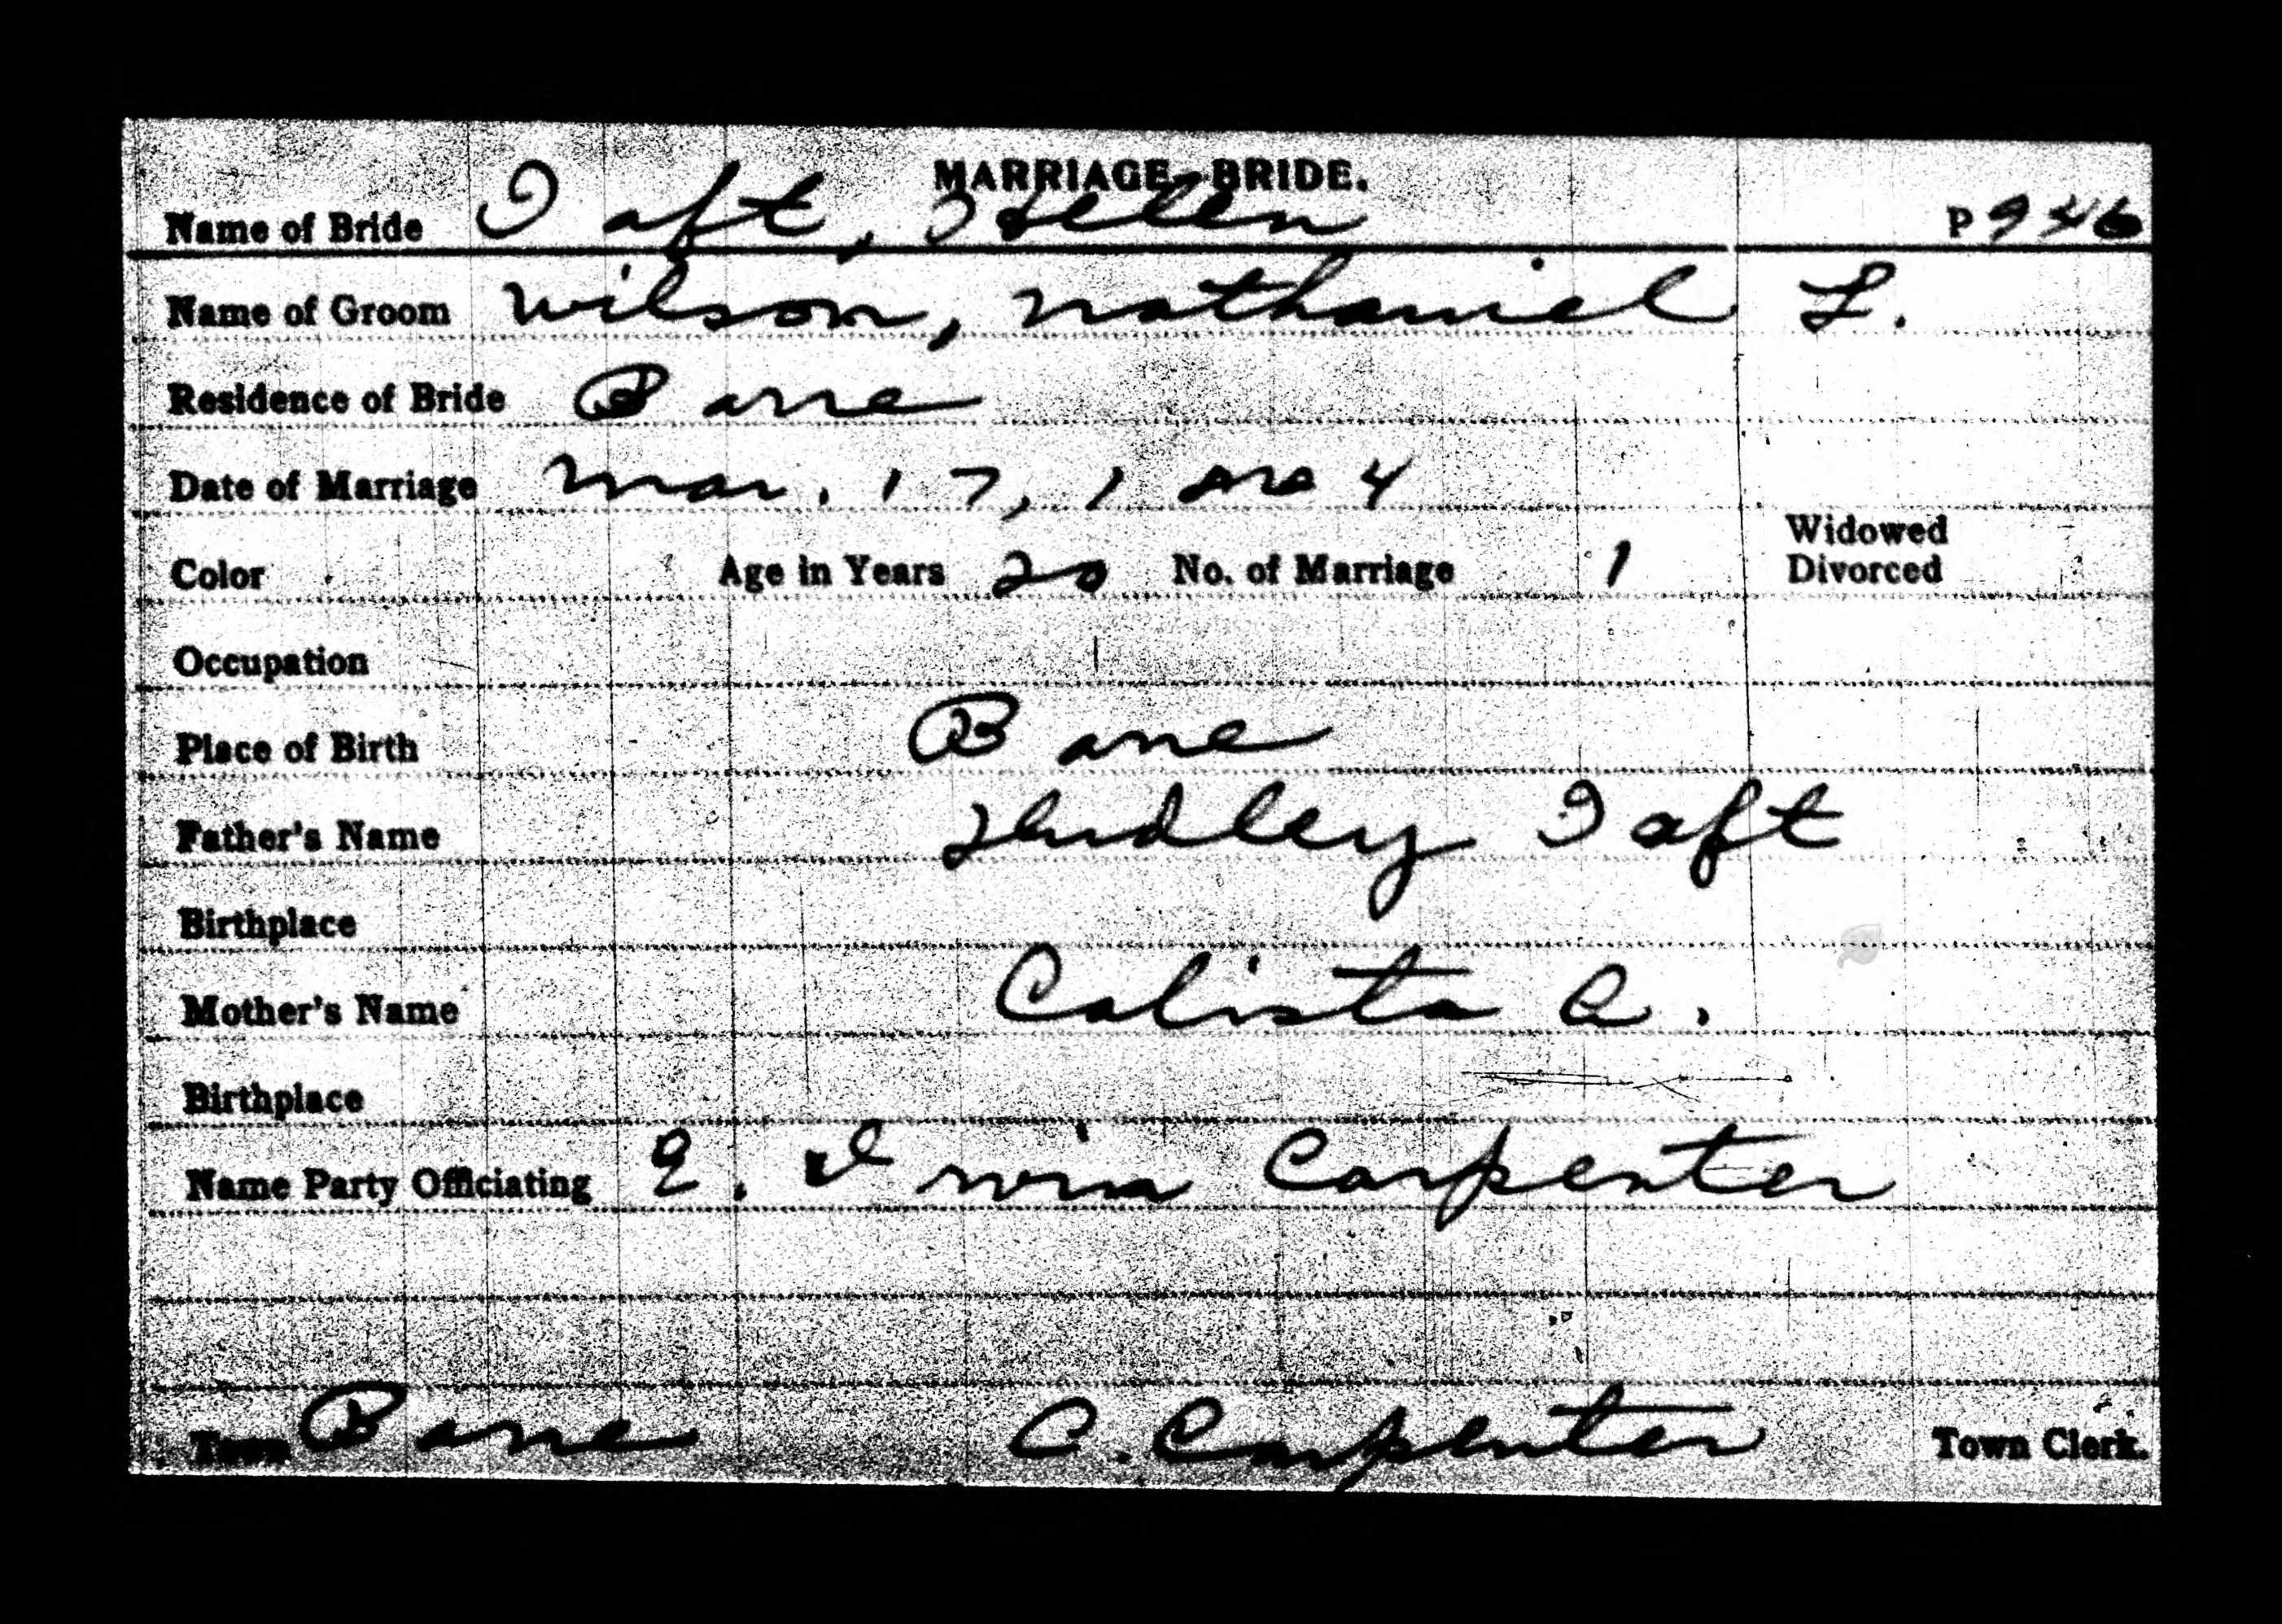 MARRIAGE—BRIDE.
Name of Bride Taft, Helen P 946
Name of Groom Wilson, Nathaniel L.
Residence of Bride Barre
Date of Marriage Mar. 17,
Color Age in Years 20 No. of Marriage 1 Widowed
Divorced
Occupation
Place of Birth Barre
Father's Name Taft
Birthplace
Mother's Name Calista A.
Birthplace
Name Party Officiating E. Irvin Carpenter
Town Barre Carpenter Town Clerk.